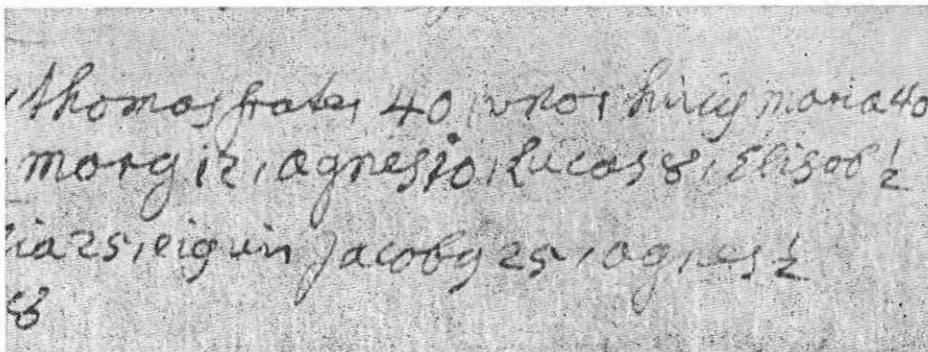 thomas frater 40, uxor huius maria 40
marg 12, agnes 10, Lucas 8, Elisab ½
ia 25, eius vir Jacobus 25, agnes ½
8